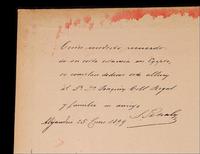 Como modesto recuerdo
de su corta estancia en Egipto,
se complace dedicar este album
al Sr. Dn. Joaquin
y familia su amigo
Alejandria 25 Enero 1889